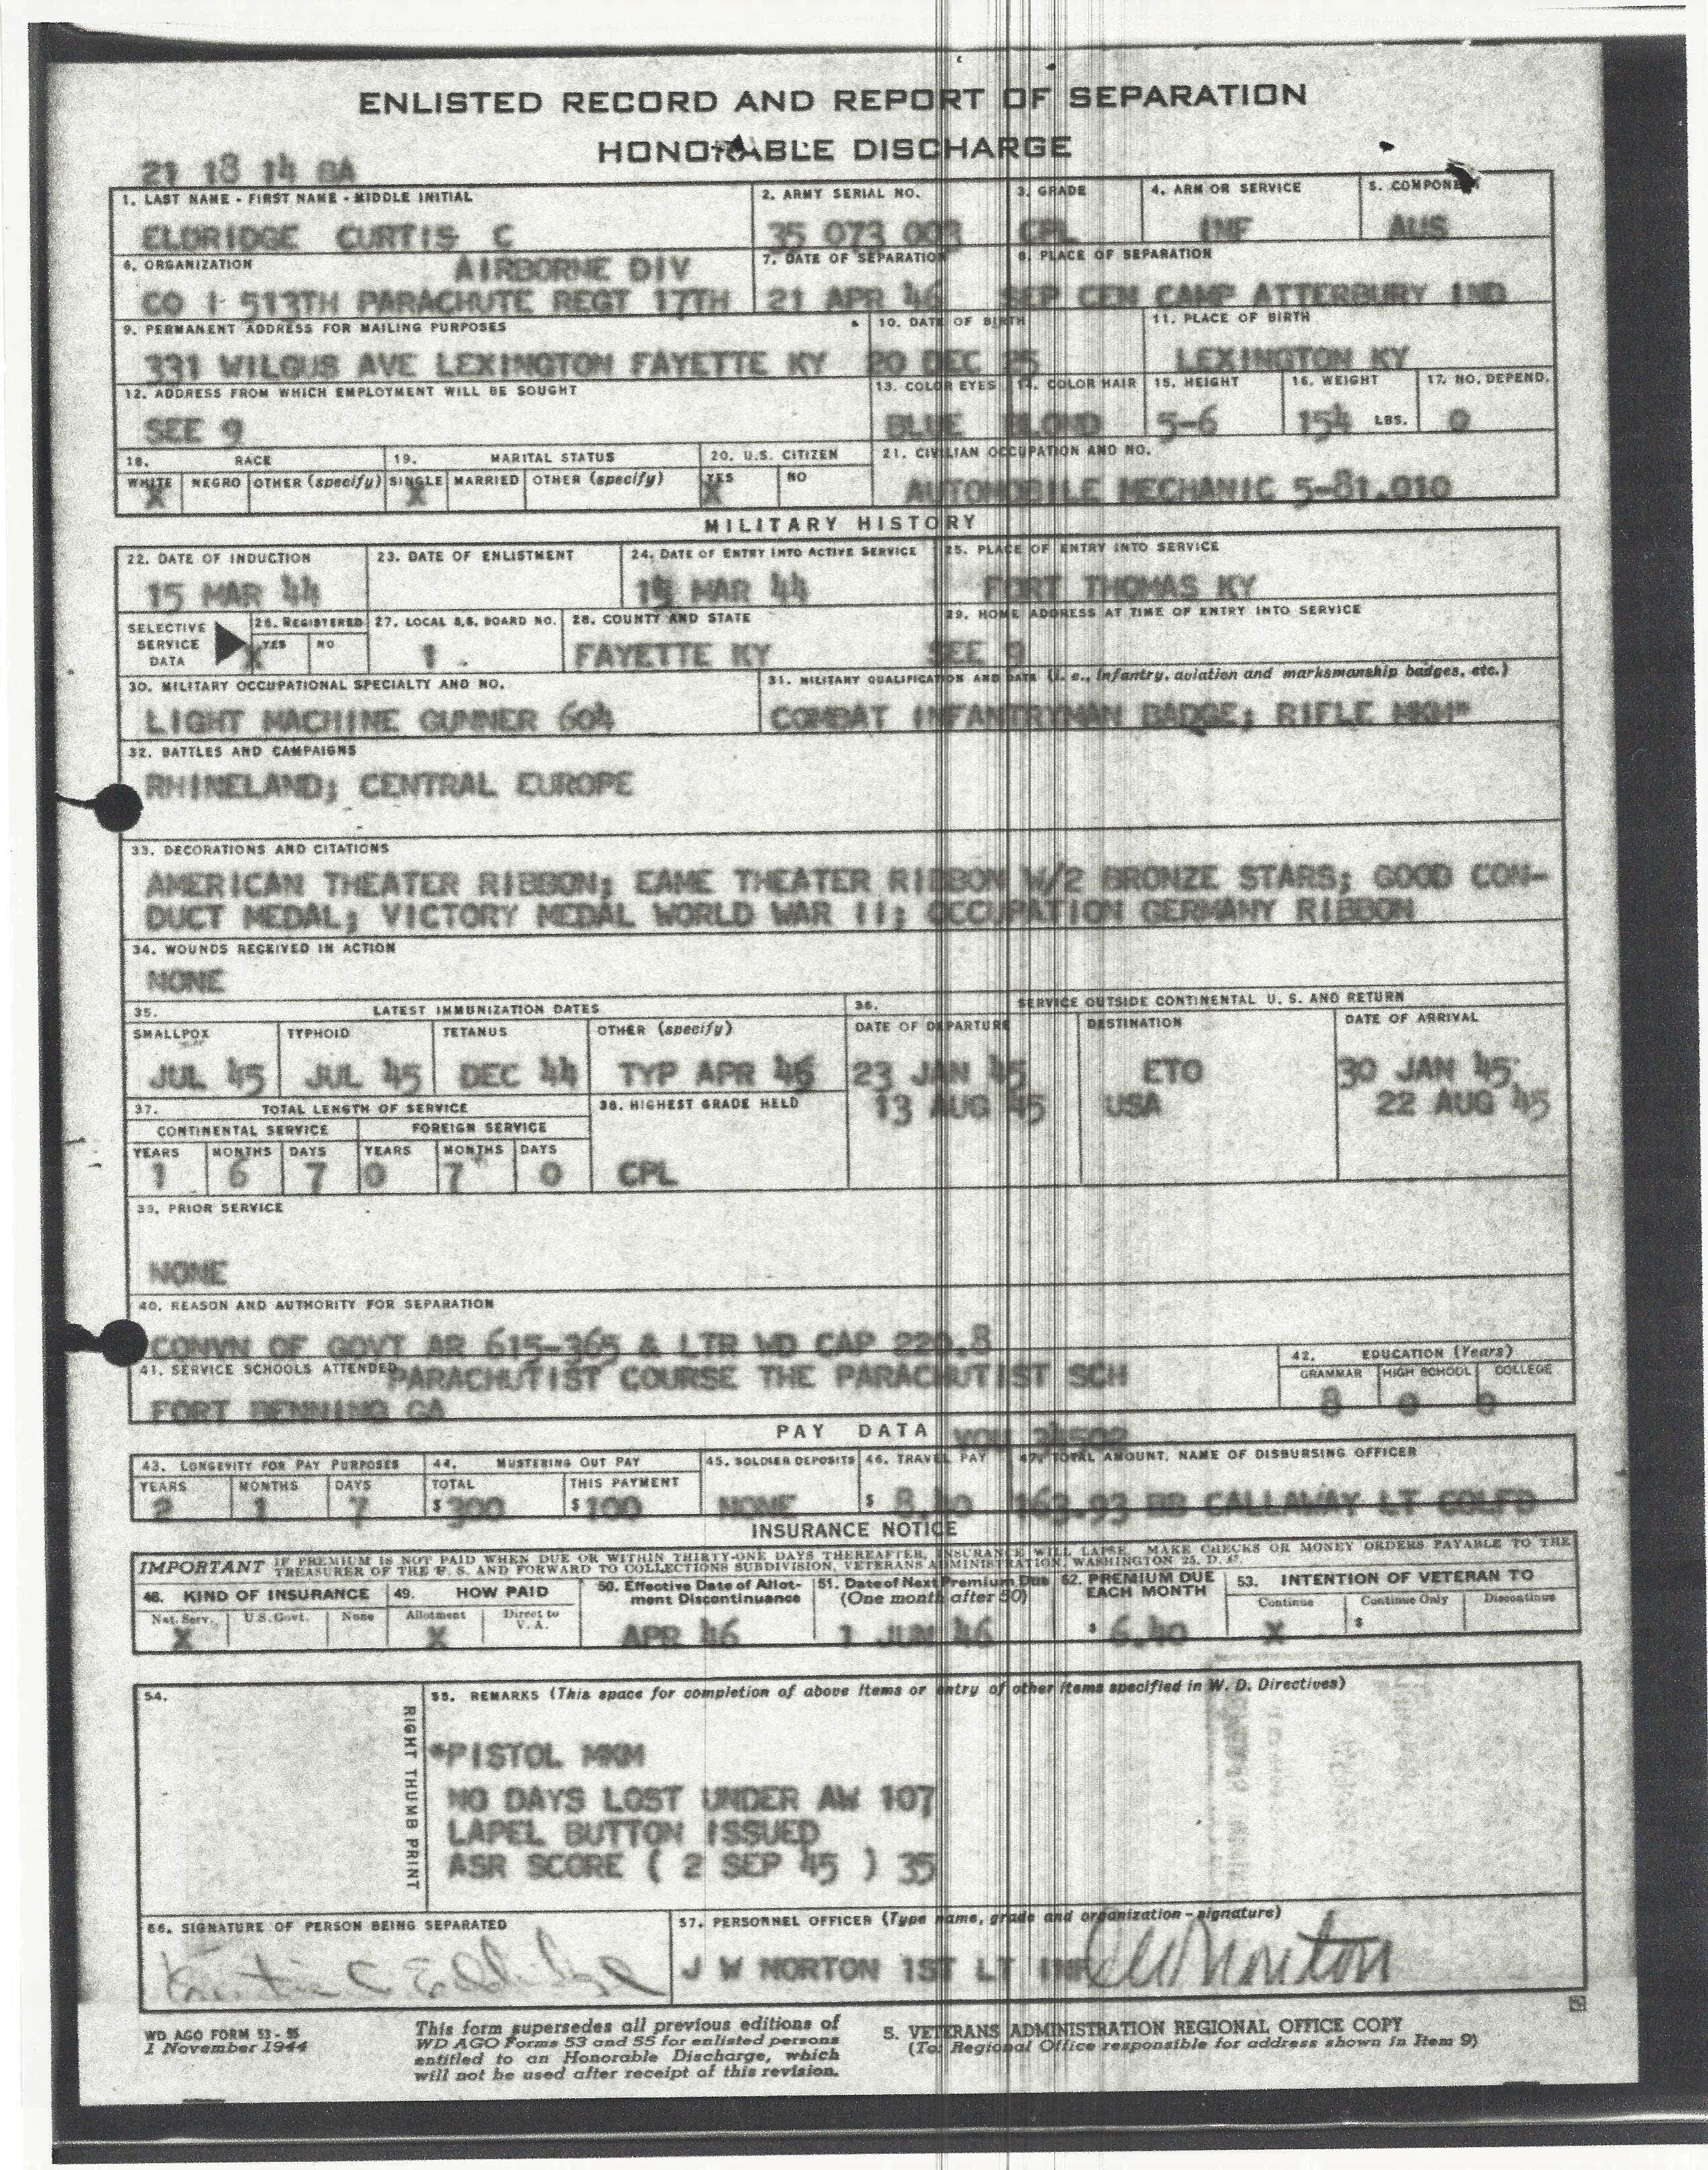 ENLISTED RECORD AND REPORT OF SEPARATION
HONORABLE DISCHARGE
21 18 14 BA
1. LAST NAME - FIRST NAME - MIDDLE INITIAL 2. ARMY SERIAL NO. 3. GRADE 4. ARM OR SERVICE 5. COMPONENT
ELDRIDGE CURTIS C 35 073 003 CPL INF AUS
6. ORGANIZATION AIRBORNE DIV 7. DATE OF SEPARATION 8. PLACE OF SEPARATION
CO I 513TH PARACHUTE REGT 17TH 21 APR 46 SEP CEN CAMP ATTERBURY IND
9. PERMANENT ADDRESS FOR MAILING PURPOSES 10. DATE OF BIRTH 11. PLACE OF BIRTH
331 WILGUS AVE LEXINGTON FAYETTE KY 20 DEC 25 LEXINGTON KY
12. ADDRESS FROM WHICH EMPLOYMENT WILL BE SOUGHT 13. COLOR EYES 14. COLOR HAIR 15. HEIGHT 16. WEIGHT 17. NO. DEPEND.
SEE 9 BLUE BLOND 5-6 154 LBS. 0
18. RACE 19. MARITAL STATUS 20. U.S. CITIZEN 21. CIVILIAN OCCUPATION AND NO.
WHITE NEGRO OTHER (specify) SINGLE MARRIED OTHER (specify) YES NO
X X X AUTOMOBILE MECHANIC 5-81.010
MILITARY HISTORY
22. DATE OF INDUCTION 23. DATE OF ENLISTMENT 24. DATE OF ENTRY INTO ACTIVE SERVICE 25. PLACE OF ENTRY INTO SERVICE
15 MAR 44 15 MAR 44 FORT THOMAS KY
SELECTIVE SERVICE DATA 26. REGISTERED 27. LOCAL S.S. BOARD NO. 28. COUNTY AND STATE 29. HOME ADDRESS AT TIME OF ENTRY INTO SERVICE
YES NO
X 1 FAYETTE KY SEE 9
30. MILITARY OCCUPATIONAL SPECIALTY AND NO. 31. MILITARY QUALIFICATION AND DATE (i. e., infantry, aviation and marksmanship badges, etc.)
LIGHT MACHINE GUNNER 604 COMBAT INFANTRYMAN BADGE; RIFLE MKM*
32. BATTLES AND CAMPAIGNS
RHINELAND; CENTRAL EUROPE
33. DECORATIONS AND CITATIONS
AMERICAN THEATER RIBBON; EAME THEATER RIBBON W/2 BRONZE STARS; GOOD CON-
DUCT MEDAL; VICTORY MEDAL WORLD WAR II; OCCUPATION GERMANY RIBBON
34. WOUNDS RECEIVED IN ACTION
NONE
35. LATEST IMMUNIZATION DATES 36. SERVICE OUTSIDE CONTINENTAL U. S. AND RETURN
SMALLPOX TYPHOID TETANUS OTHER (specify) DATE OF DEPARTURE DESTINATION DATE OF ARRIVAL
JUL 45 JUL 45 DEC 44 TYP APR 46 23 JAN 45 ETO 30 JAN 45
37. TOTAL LENGTH OF SERVICE 38. HIGHEST GRADE HELD 13 AUG 45 USA 22 AUG 45
CONTINENTAL SERVICE FOREIGN SERVICE
YEARS MONTHS DAYS YEARS MONTHS DAYS
1 6 7 0 7 0 CPL
39. PRIOR SERVICE
NONE
40. REASON AND AUTHORITY FOR SEPARATION
CONVN OF GOVT AR 615-365 & LTR WD CAP 220.8
41. SERVICE SCHOOLS ATTENDED PARACHUTIST COURSE THE PARACHUTIST SCH 42. EDUCATION (Years)
GRAMMAR HIGH SCHOOL COLLEGE
FORT BENNING GA 8 0 0
PAY DATA VOU 34502
43. LONGEVITY FOR PAY PURPOSES 44. MUSTERING OUT PAY 45. SOLDIER DEPOSITS 46. TRAVEL PAY 47. TOTAL AMOUNT, NAME OF DISBURSING OFFICER
YEARS MONTHS DAYS TOTAL THIS PAYMENT
2 1 7 $ 300 $ 100 NONE $ 8.40 163.93 BB CALLAWAY LT COLFD
INSURANCE NOTICE
IMPORTANT IF PREMIUM IS NOT PAID WHEN DUE OR WITHIN THIRTY-ONE DAYS THEREAFTER, INSURANCE WILL LAPSE. MAKE CHECKS OR MONEY ORDERS PAYABLE TO THE
TREASURER OF THE U. S. AND FORWARD TO COLLECTIONS SUBDIVISION, VETERANS ADMINISTRATION, WASHINGTON 25, D. C.
48. KIND OF INSURANCE 49. HOW PAID 50. Effective Date of Allotment Discontinuance 51. Date of Next Premium Due (One month after 50) 52. PREMIUM DUE EACH MONTH 53. INTENTION OF VETERAN TO
Nat. Serv. U.S. Govt. None Allotment Direct to V. A. Continue Continue Only Discontinue
X X APR 46 1 JUN 46 $ 6.40 X $
54. RIGHT THUMB PRINT
55. REMARKS (This space for completion of above items or entry of other items specified in W. D. Directives)
*PISTOL MKM
NO DAYS LOST UNDER AW 107
LAPEL BUTTON ISSUED
ASR SCORE ( 2 SEP 45 ) 35
56. SIGNATURE OF PERSON BEING SEPARATED 57. PERSONNEL OFFICER (Type name, grade and organization - signature)
Curtis C Eldridge J W NORTON 1ST LT INF JW Norton
WD AGO FORM 53 - 55
1 November 1944
This form supersedes all previous editions of
WD AGO Forms 53 and 55 for enlisted persons
entitled to an Honorable Discharge, which
will not be used after receipt of this revision.
5. VETERANS ADMINISTRATION REGIONAL OFFICE COPY
(To: Regional Office responsible for address shown in Item 9)